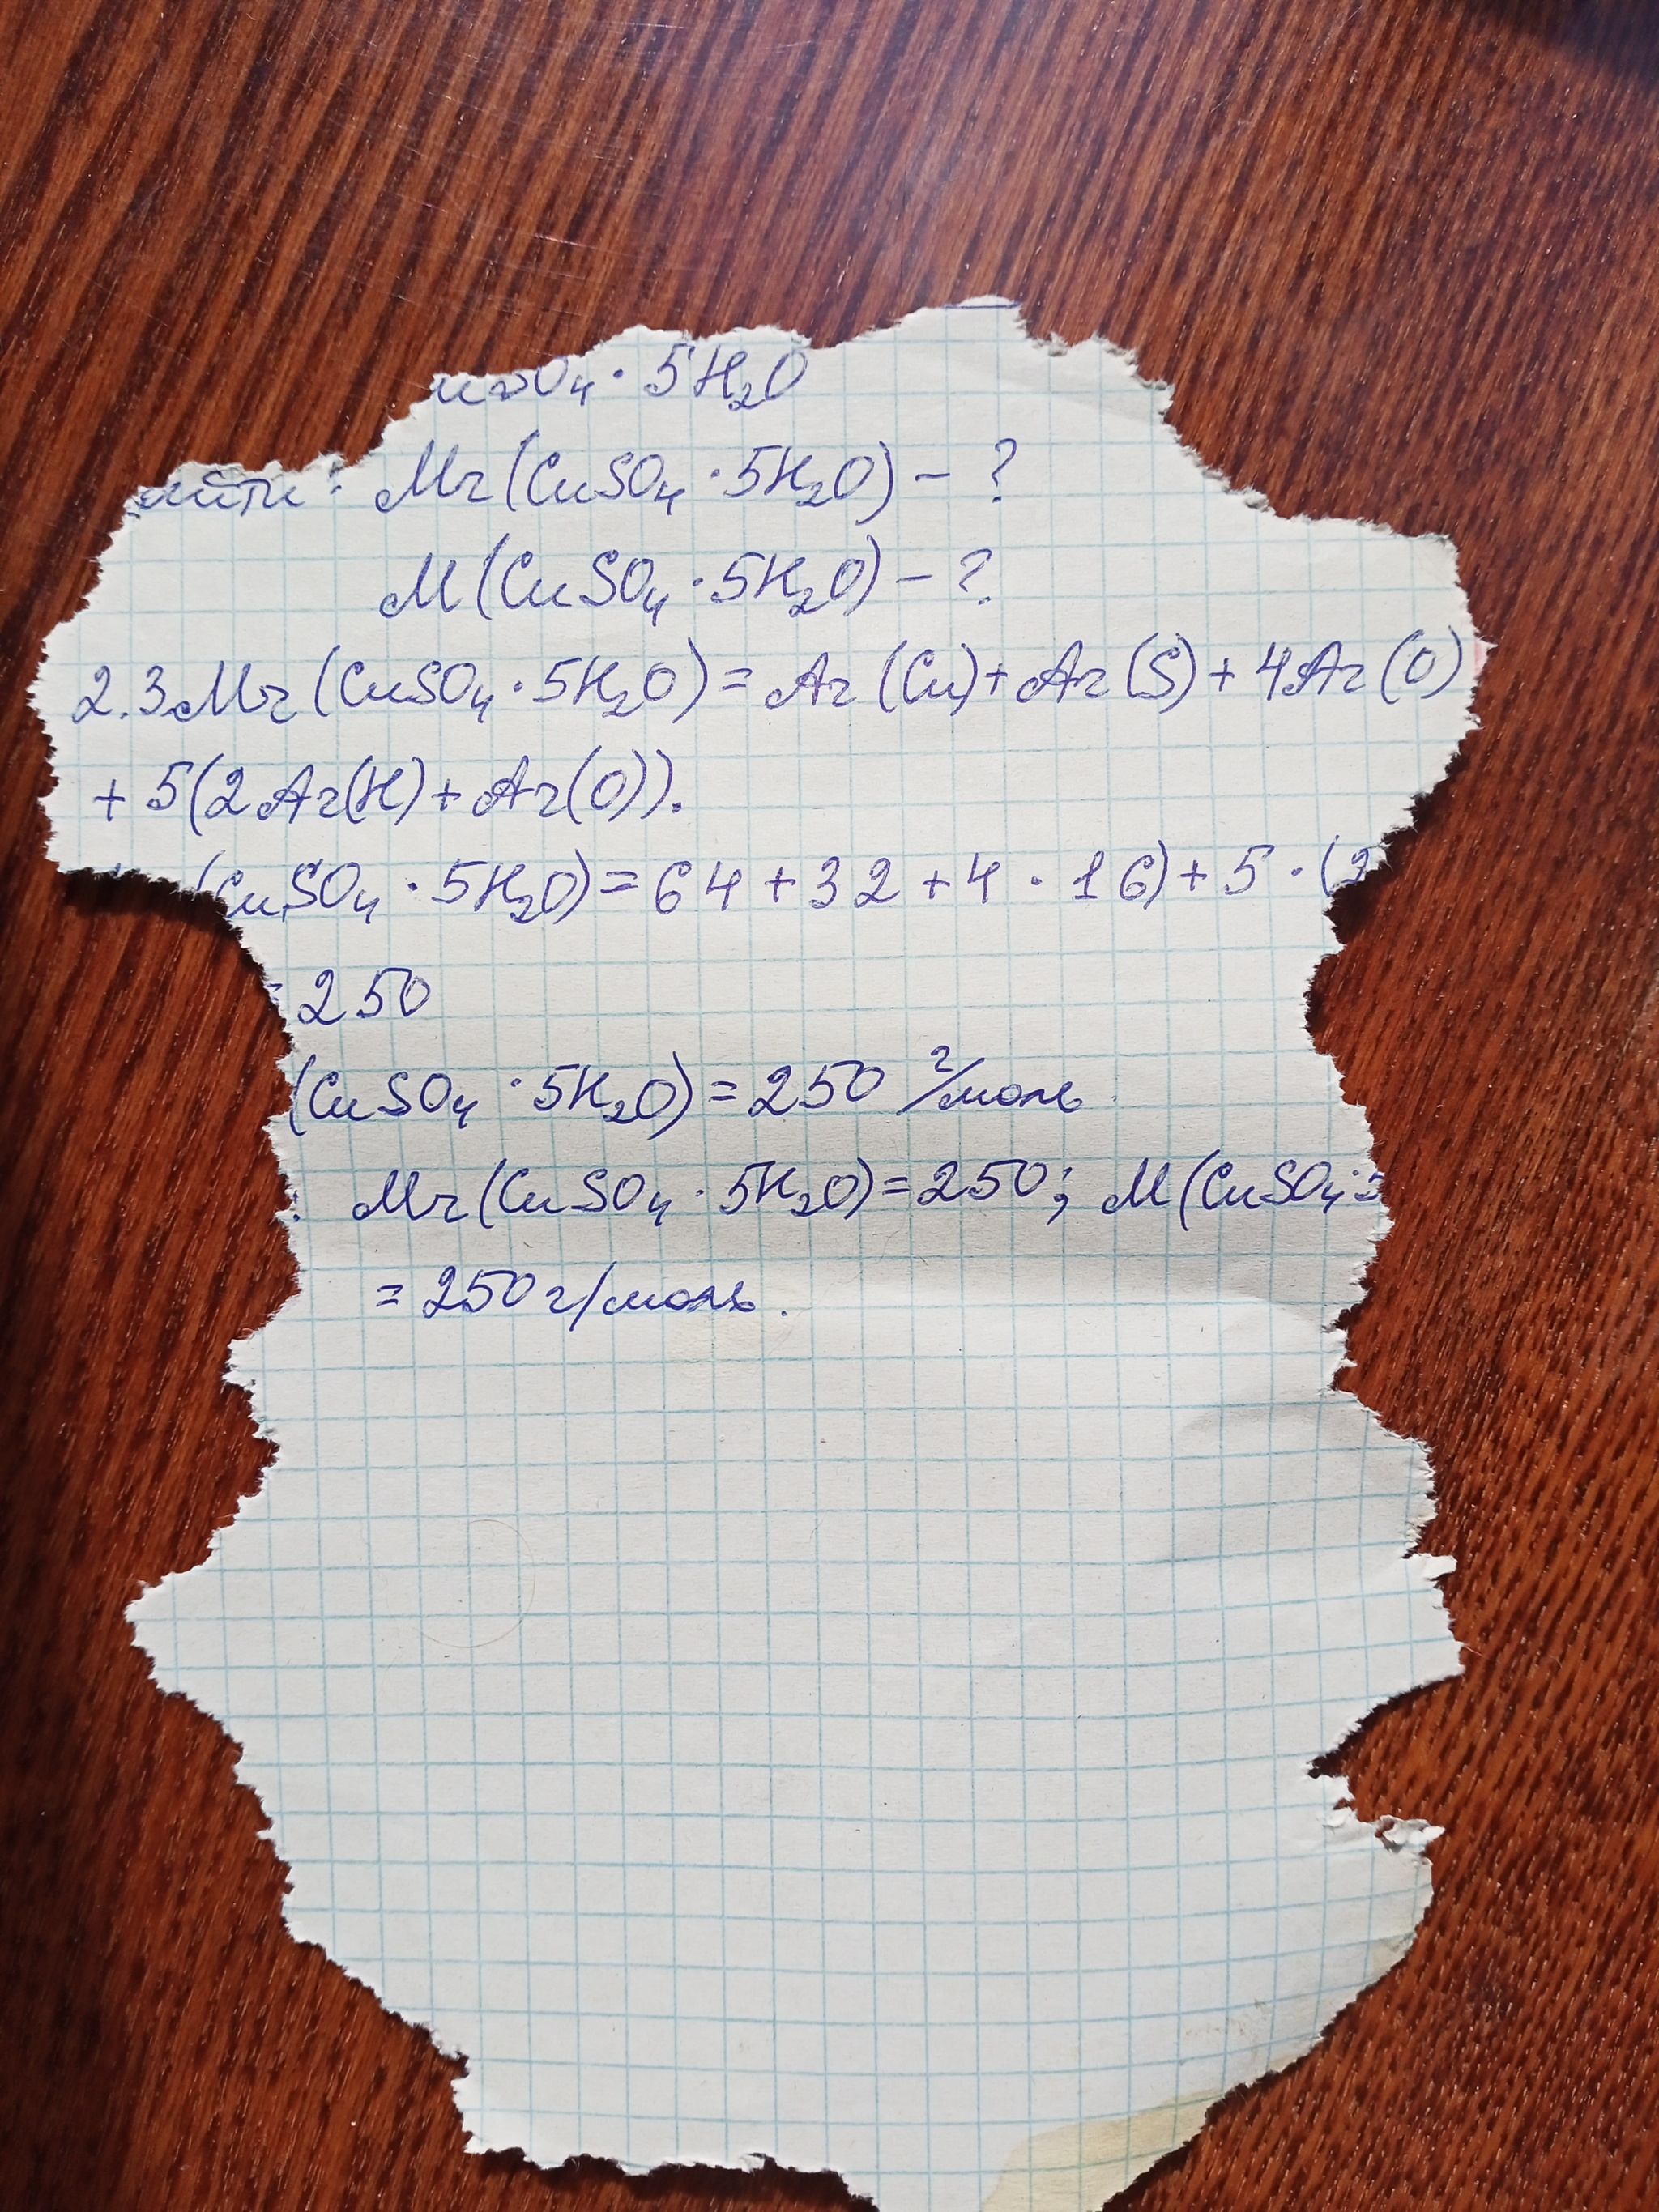 SO₄ · 5H₂O
Mr(CuSO₄ · 5H₂O) – ?
M(CuSO₄ · 5H₂O) – ?
2.3. Mr(CuSO₄ · 5H₂O) = Ar(Cu) + Ar(S) + 4Ar(O)
+ 5(2Ar(H) + Ar(O)).
(CuSO₄ · 5H₂O) = 64 + 32 + 4 · 16) + 5 · (2
= 250
(CuSO₄ · 5H₂O) = 250 г/моль
: Mr(CuSO₄ · 5H₂O) = 250; M(CuSO₄ · 5
= 250 г/моль.